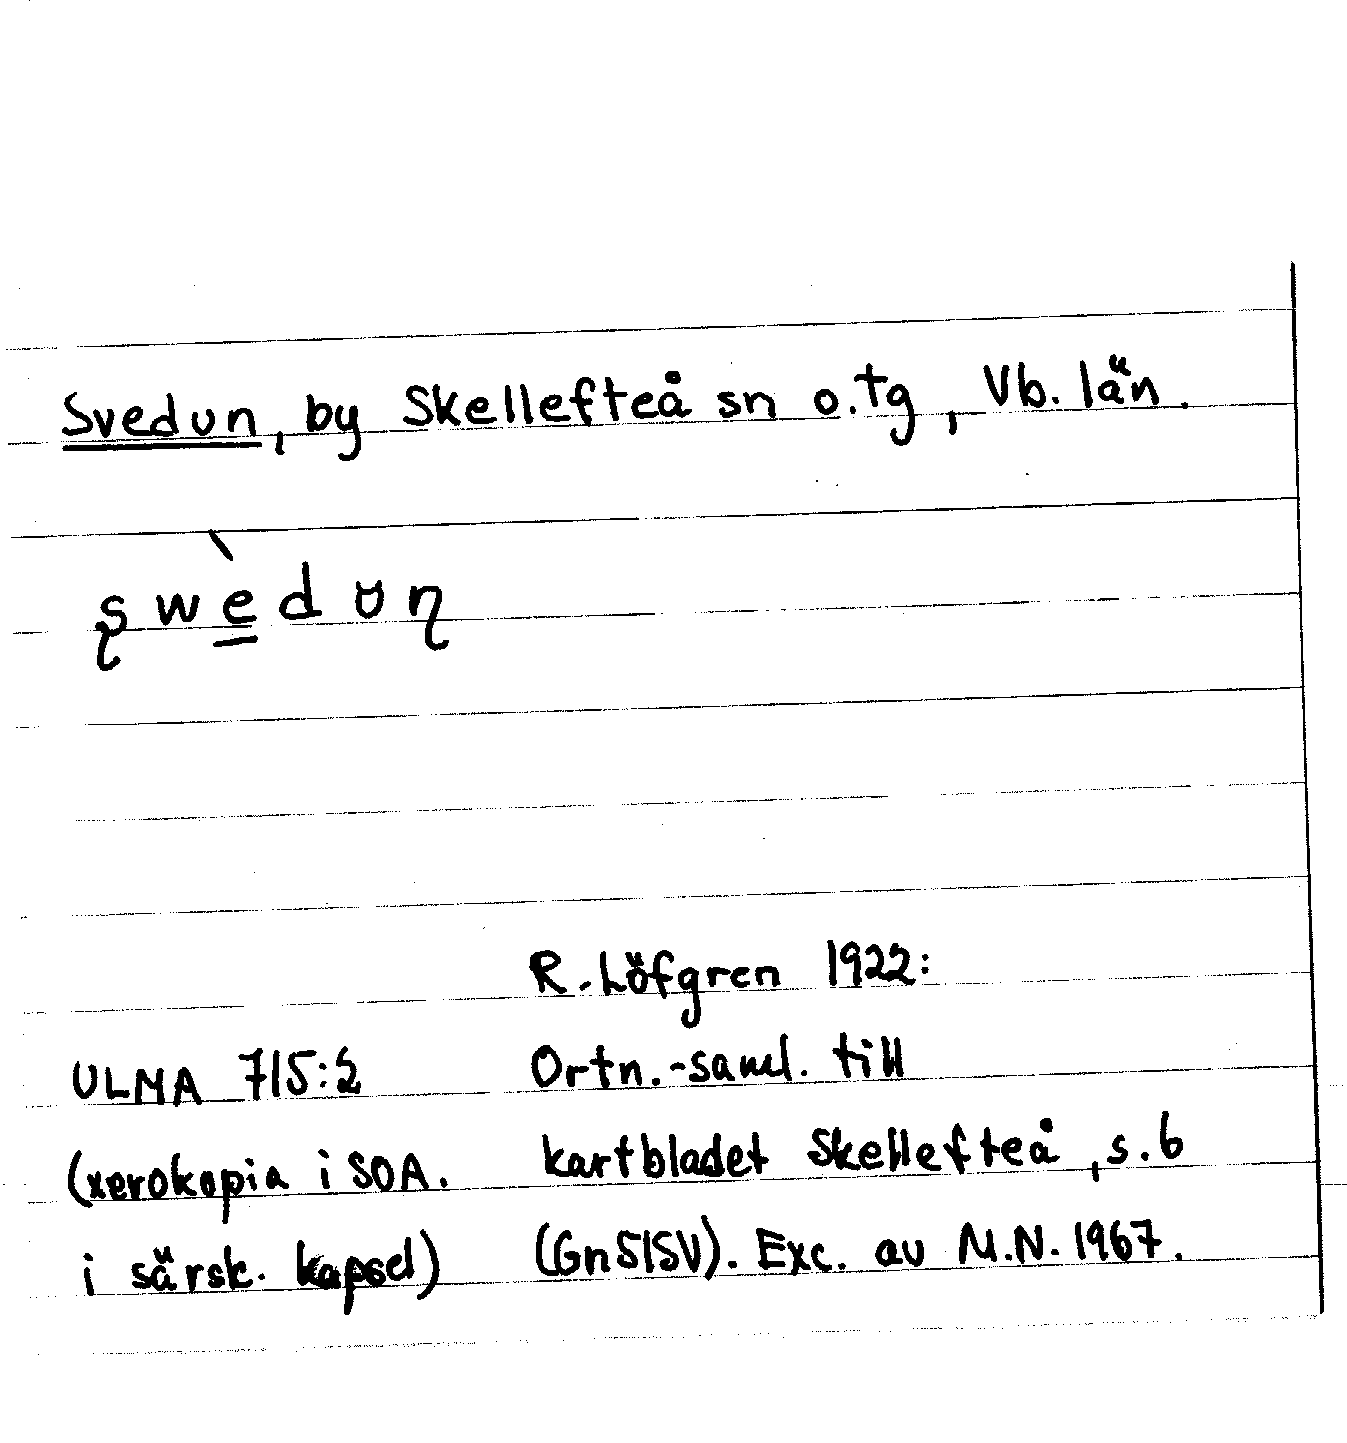 Svedun, by Skellefteå sn o. tg, Vb. län.
ʂwèdʊɳ
R. Löfgren 1922:
ULMA 715:2 Ortn.-saml. till
(xerokopia i SOA. kartbladet Skellefteå, s. 6
i särsk. kapsel) (Gn51SV). Exc. av M.N. 1967.